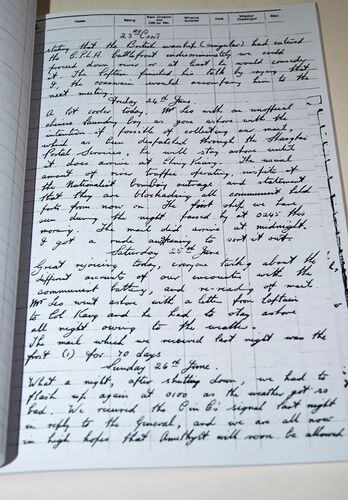 Name Rating Port Division and Official No. Whence Entered Date Whither Discharged Ship
23rd Cont
stating that the British warship (singular) had entered
the C.P.L.A battlefront indiscriminately we could
proceed down river or at least he would consider
it. The Captain finished his talk by saying that
I, the coxswain would accompany him to the
next meeting.
Friday 24th June.
A lot cooler today. Mr Leo with an unofficial
chinese laundry boy as gone ashore with the
intention if possible of collecting our mail,
which as been dispatched through the Shanghai
Postal Services, he will stay ashore until
it does arrive at Ching Kiang. The usual
amount of river traffic operating, inspite of
the Nationalist bombing outrage and statement
that they are blockading all communist held
ports from now on. The first ship we have
seen during the night passed by at 0245 this
morning. The mail did arrive at midnight.
I got a rude awakening to sort it out.
Saturday 25th June
Great rejoicing today, everyone talking about the
different accounts of our encounter with the
communist battery, and re-reading of mail.
Mr Leo went ashore with a letter from Captain
to Col Kang and he had to stay ashore
all night owing to the weather.
The mail which we received last night was the
first (1) for 70 days
Sunday 26th June.
What a night, after shutting down, we had to
flash up again at 0100 as the weather got so
bad. We received the C in C's signal last night
in reply to the General, and we are all now
in high hopes that Amethyst will soon be allowed